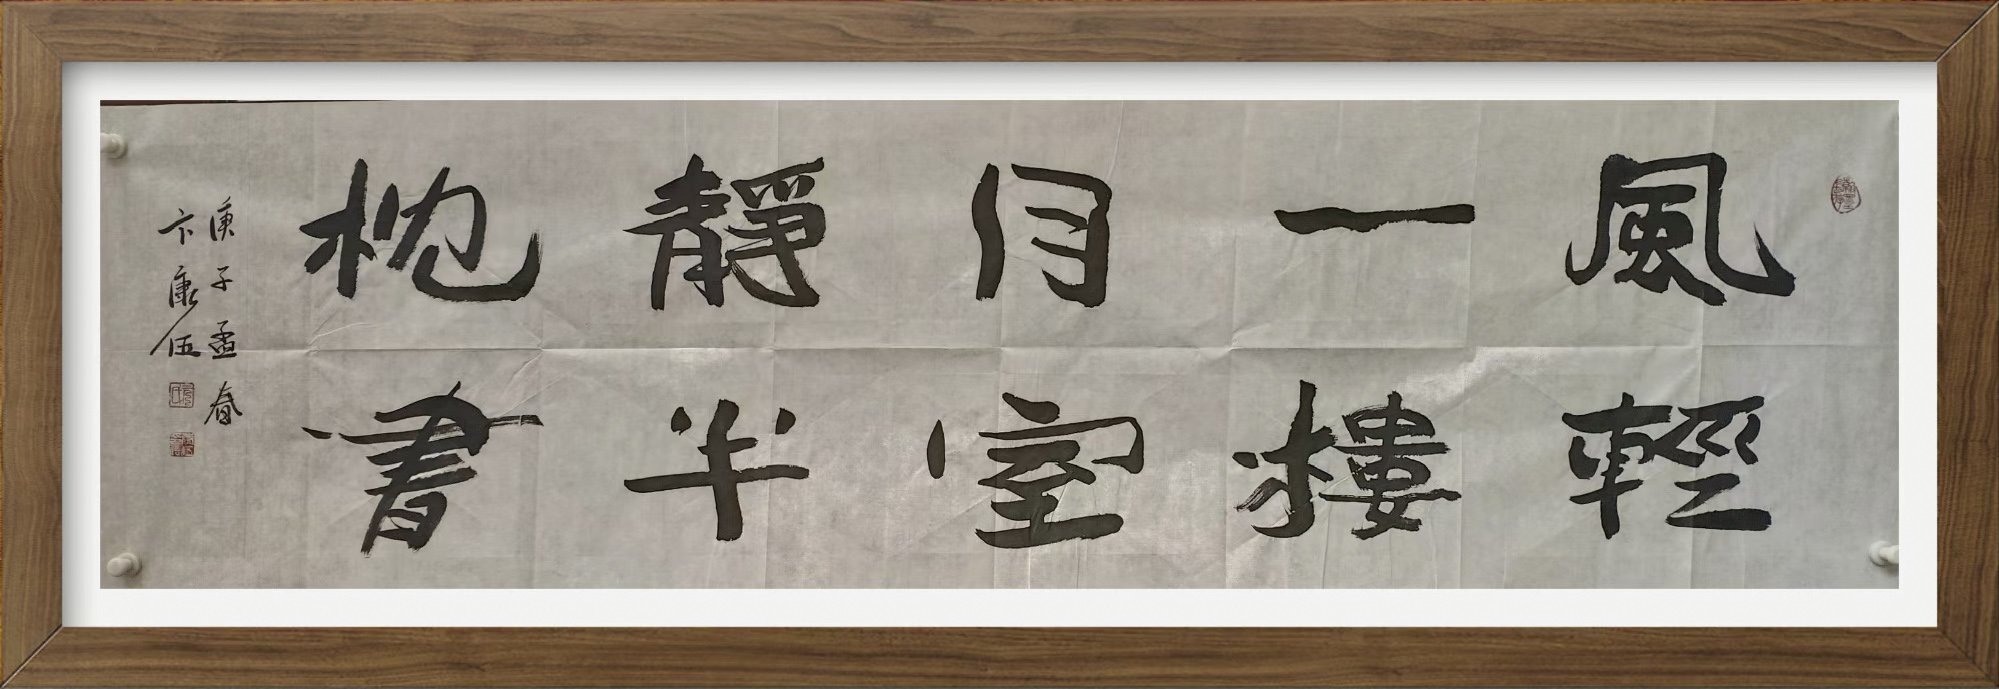 風輕
一樓
月室
靜半
枕書
庚子孟春
卞康伍